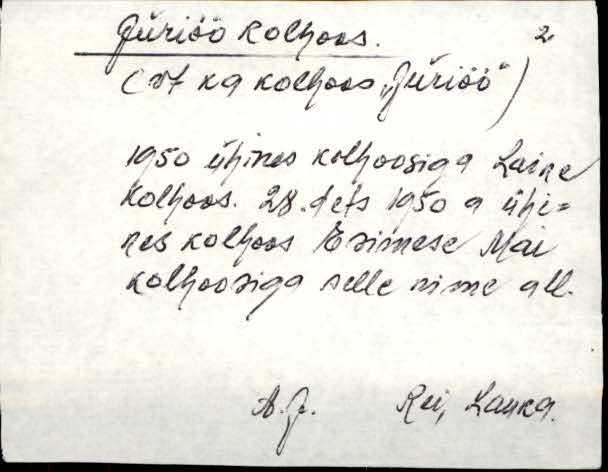 Jüriöö kolhoos. 2
(vt ka kolhoos „Jüriöö")
1950 ühines kolhoosiga Laine
kolhoos. 28. dets 1950 a ühi=
nes kolhoos Esimese Mai
kolhoosiga selle nime all.
A.J. Rei, Lauka.